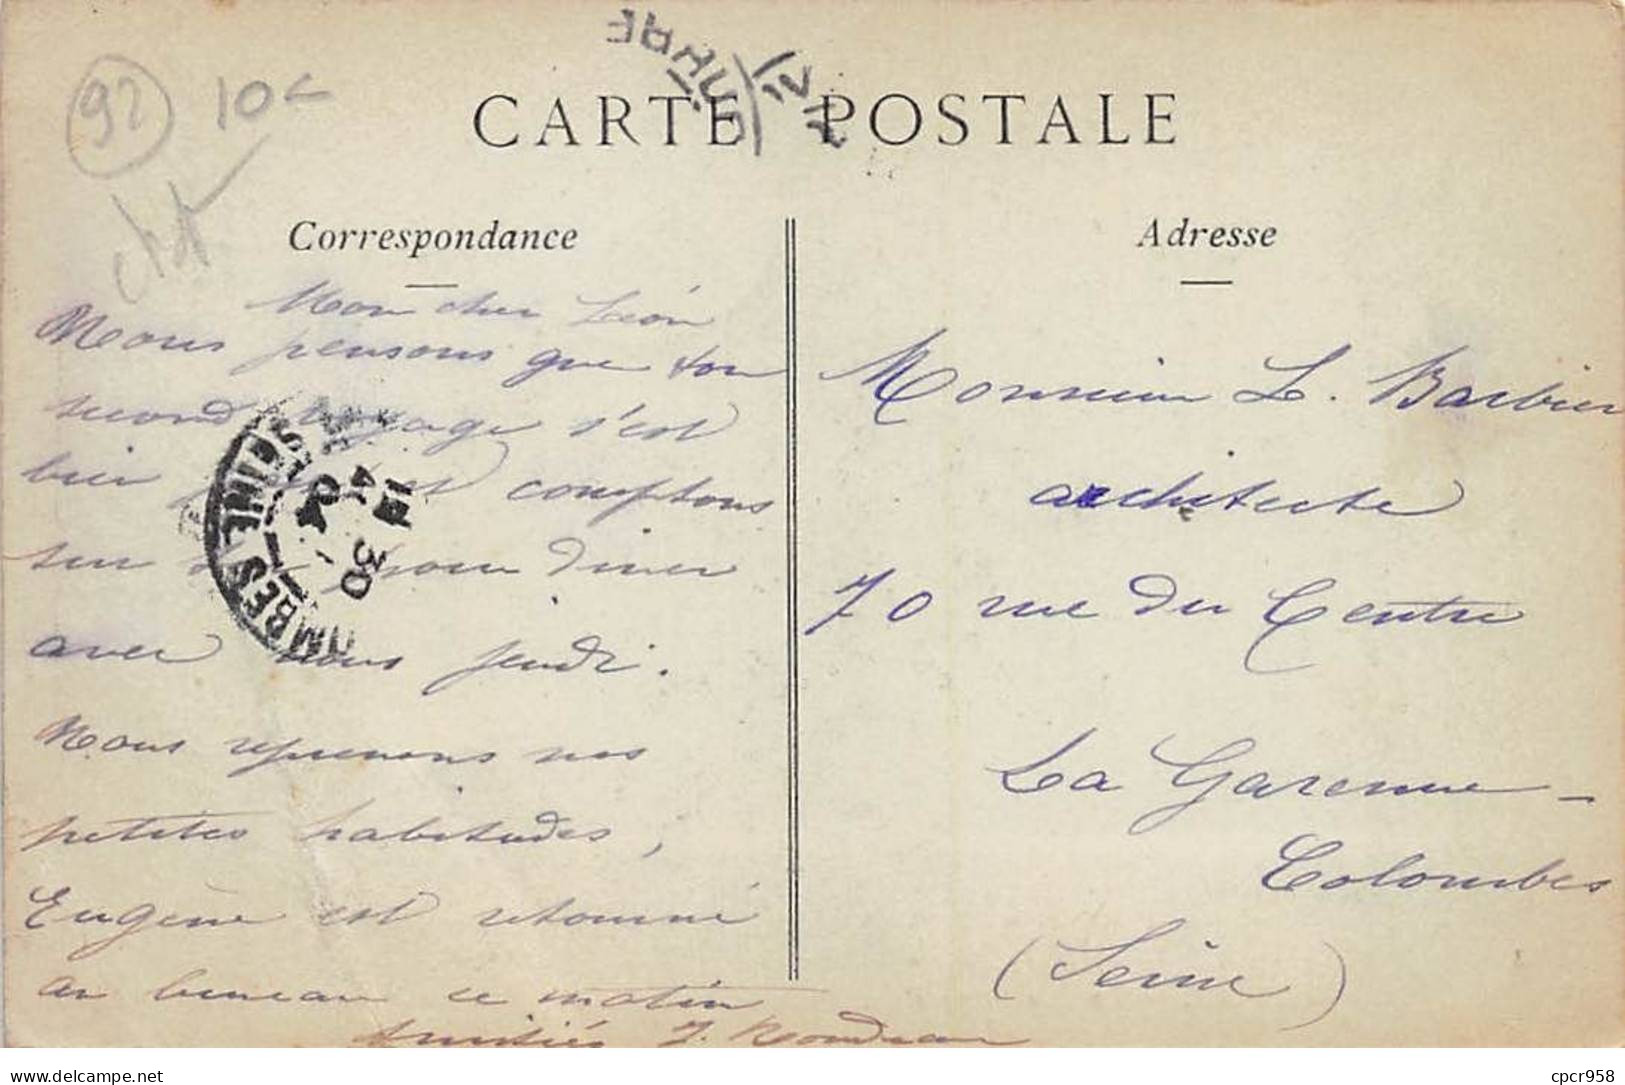 92
10c
CARTE POSTALE
Correspondance
Mon cher Léon
Nous pensons que ton
second voyage s'est
bien et comptons
sur pour diner
avec nous jeudi.
Nous reprenons nos
petites habitudes,
Eugène est retourné
au bureau ce matin
Amitiés J. Rondeau
Adresse
Monsieur L. Barbier
architecte
70 rue du Centre
La Garenne-
Colombes
(Seine)
SEINE
4 30
cpcr958